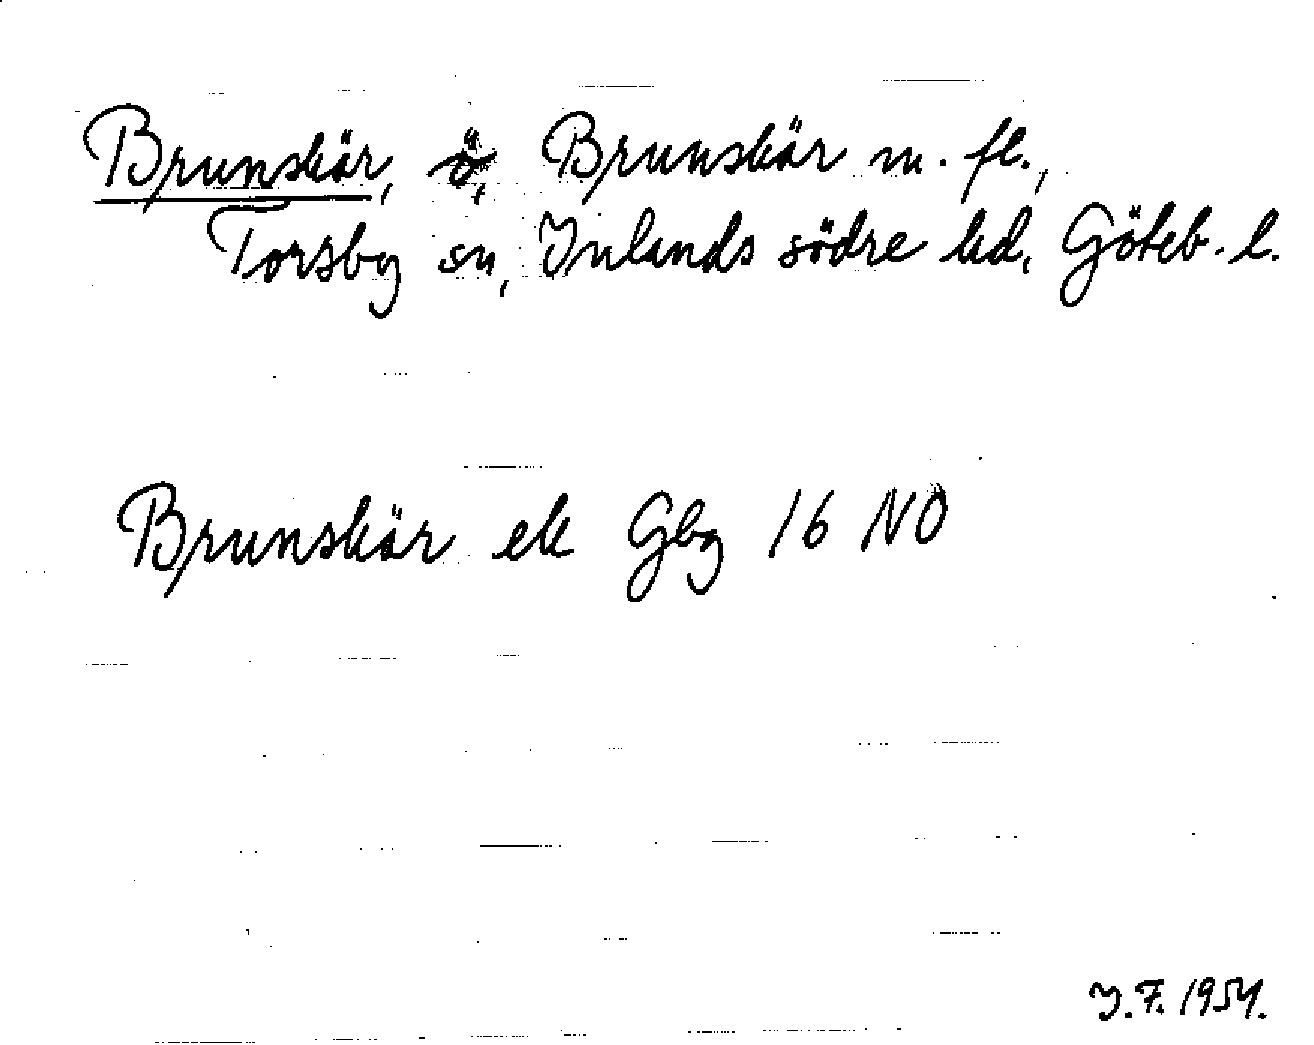 Brunskär, ö, Brunskär m. fl.,
Torsby sn, Inlands södre hd, Göteb. l.
Brunskär ek Gbg 16 NO
I.F. 1954.